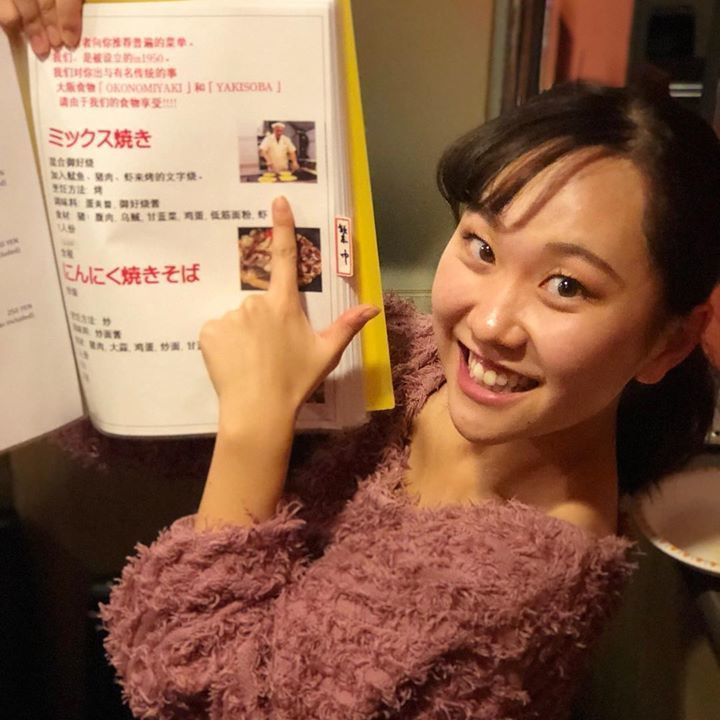 者向你推荐普遍的菜单。
我们、是被设立的in1950。
我们对你出与有名传统的事
大阪食物「OKONOMIYAKI」和「YAKISOBA」
请由于我们的食物享受!!!!
ミックス焼き
混合御好烧
加入鱿鱼、猪肉、虾来烤的文字烧。
烹饪方法: 烤
调味料: 蛋黄酱, 御好烧酱
食材: 猪: 腹肉, 乌贼, 甘蓝菜, 鸡蛋, 低筋面粉, 虾
1人份
にんにく焼きそば
烹饪方法: 炒
调味料: 炒面酱
猪肉, 大蒜, 鸡蛋, 炒面, 甘蓝
繁中
YEN
250 YEN